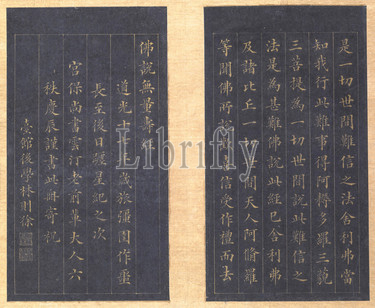 是一切世間難信之法舍利弗當
知我行此難事得阿耨多羅三藐
三菩提為一切世間說此難信之
法是為甚難佛說此經已舍利弗
及諸比丘一切世間天人阿脩羅
等聞佛所說歡喜信受作禮而去
佛說無量壽經
道光十年歲彊圉作噩
長至後日躔星紀之次
宮保尚書雲汀老前輩大人六
秩慶辰謹書此冊奉祝
臺館後學林則徐
Librifly